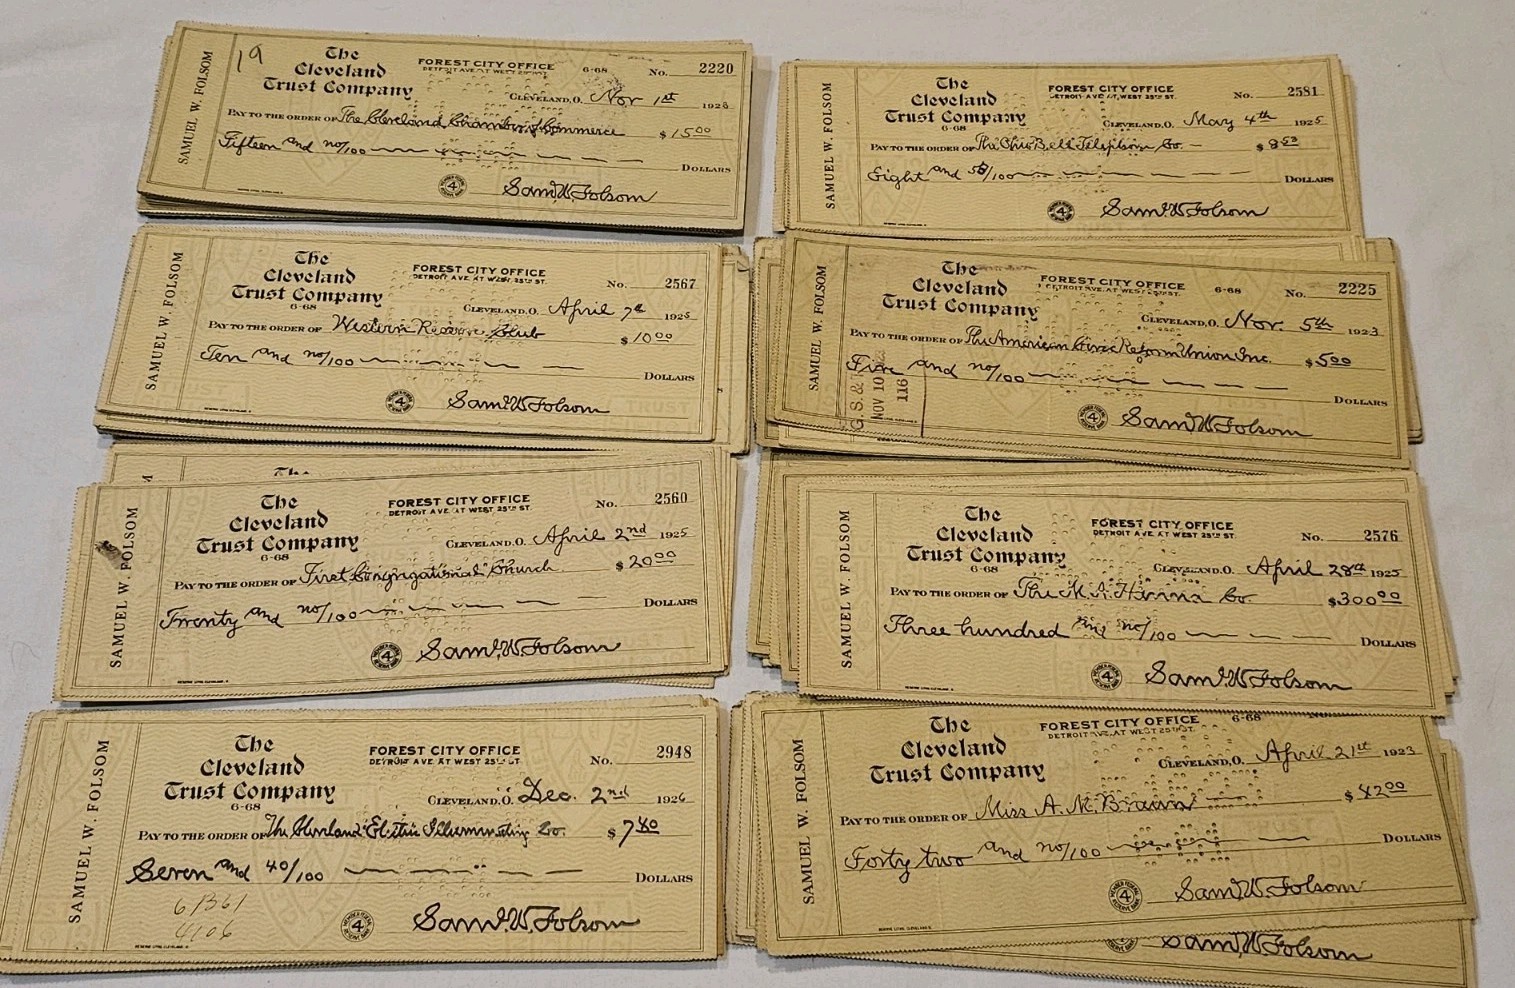 SAMUEL W. FOLSOM
19
The
Cleveland
Trust Company
FOREST CITY OFFICE
DETROIT AVE. AT WEST 25TH ST.
6-68
No. 2220
CLEVELAND, O. Nov 1st 1923
PAY TO THE ORDER OF The Cleveland Chamber of Commerce $15 00
Fifteen and no/100 DOLLARS
MEMBER FEDERAL RESERVE BANK 4
Sam'l W. Folsom
SAMUEL W. FOLSOM
The
Cleveland
Trust Company
6-68
FOREST CITY OFFICE
DETROIT AVE. AT WEST 25TH ST.
No. 2581
CLEVELAND, O. May 4th 1925
PAY TO THE ORDER OF The Ohio Bell Telephone Co. $8 53
Eight and 53/100 DOLLARS
4
Sam'l W. Folsom
SAMUEL W. FOLSOM
The
Cleveland
Trust Company
6-68
FOREST CITY OFFICE
DETROIT AVE. AT WEST 25TH ST.
No. 2567
CLEVELAND, O. April 7th 1925
PAY TO THE ORDER OF Western Reserve Club $10 00
Ten and no/100 DOLLARS
4
Sam'l W. Folsom
SAMUEL W. FOLSOM
The
Cleveland
Trust Company
FOREST CITY OFFICE
DETROIT AVE. AT WEST 25TH ST.
6-68
No. 2225
CLEVELAND, O. Nov. 5th 1923
PAY TO THE ORDER OF The American Civic Reform Union Inc. $5 00
Five and no/100 DOLLARS
G. S. &
NOV 10
116
4
Sam'l W. Folsom
SAMUEL W. FOLSOM
The
Cleveland
Trust Company
6-68
FOREST CITY OFFICE
DETROIT AVE. AT WEST 25TH ST.
No. 2560
CLEVELAND, O. April 2nd 1925
PAY TO THE ORDER OF First Congregational Church $20 00
Twenty and no/100 DOLLARS
MEMBER FEDERAL RESERVE BANK 4
Sam'l W. Folsom
SAMUEL W. FOLSOM
The
Cleveland
Trust Company
6-68
FOREST CITY OFFICE
DETROIT AVE. AT WEST 25TH ST.
No. 2576
CLEVELAND, O. April 28th 1925
PAY TO THE ORDER OF The M. A. Hanna Co. $300 00
Three hundred and no/100 DOLLARS
MEMBER FEDERAL RESERVE BANK 4
Sam'l W. Folsom
SAMUEL W. FOLSOM
The
Cleveland
Trust Company
6-68
FOREST CITY OFFICE
DETROIT AVE. AT WEST 25TH ST.
No. 2948
CLEVELAND, O. Dec. 2nd 1926
PAY TO THE ORDER OF The Cleveland Electric Illuminating Co. $7 40
Seven and 40/100 DOLLARS
MEMBER FEDERAL RESERVE BANK 4
Sam'l W. Folsom
SAMUEL W. FOLSOM
The
Cleveland
Trust Company
FOREST CITY OFFICE
DETROIT AVE. AT WEST 25TH ST.
6-68
CLEVELAND, O. April 21st 1923
PAY TO THE ORDER OF Miss A. M. Braun $42 00
Forty two and no/100 DOLLARS
MEMBER FEDERAL RESERVE BANK 4
Sam'l W. Folsom
Sam'l W. Folsom